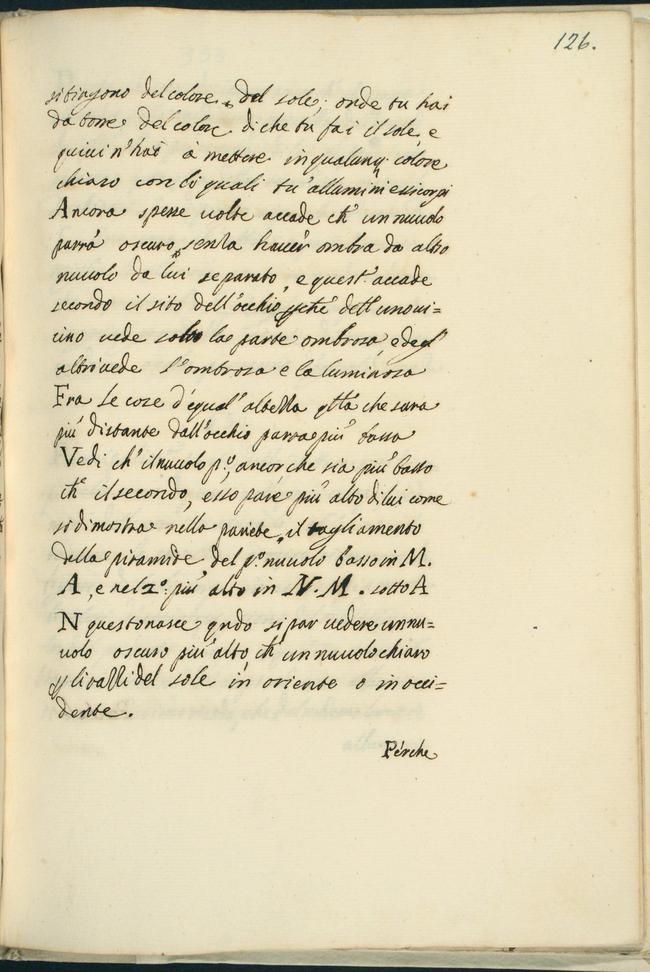 126.
si tingono del colore del sole; onde tu hai
da torre del colore di che tu fai il sole, e
quivi n'hai à mettere in qualunq; colore
chiaro con li quali tu allumini essi corpi
Ancora spesse volte accade ch' un nuvolo
parrà oscuro, senza haver ombra da altro
nuvolo da lui separato, e quest' accade
secondo il sito dell'occhio, pche dell' uno vi=
cino vede solo la parte ombrosa, e degl'
altri vede l'ombrosa e la luminosa
Fra le cose d'equal' altezza qlla che sara
più distante dall'occhio parra più bassa
Vedi ch' il nuvolo p.º, ancor che sia più basso
ch' il secondo, esso pare più alto di lui come
si dimostra nella pariete, il tagliamento
della piramide, del p.º nuvolo basso in M.
A, e nel 2.º più alto in N. M. sotto A
N questo nasce qndo si par vedere un nu=
volo oscuro più alto ch' un nuvolo chiaro
p li razzi del sole in oriente o in occi=
dente.
Perche